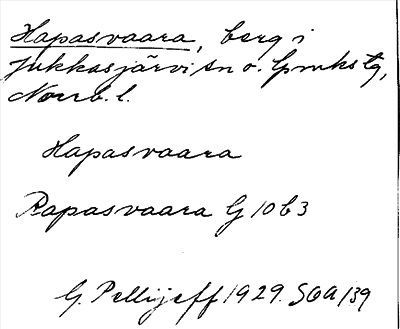 Hapasvaara, berg i
Jukkasjärvi sn o. lpmkstg,
Norrb. l.
Hapasvaara
Rapasvaara G 10 b 3
G. Pellijeff 1929. SOA 139